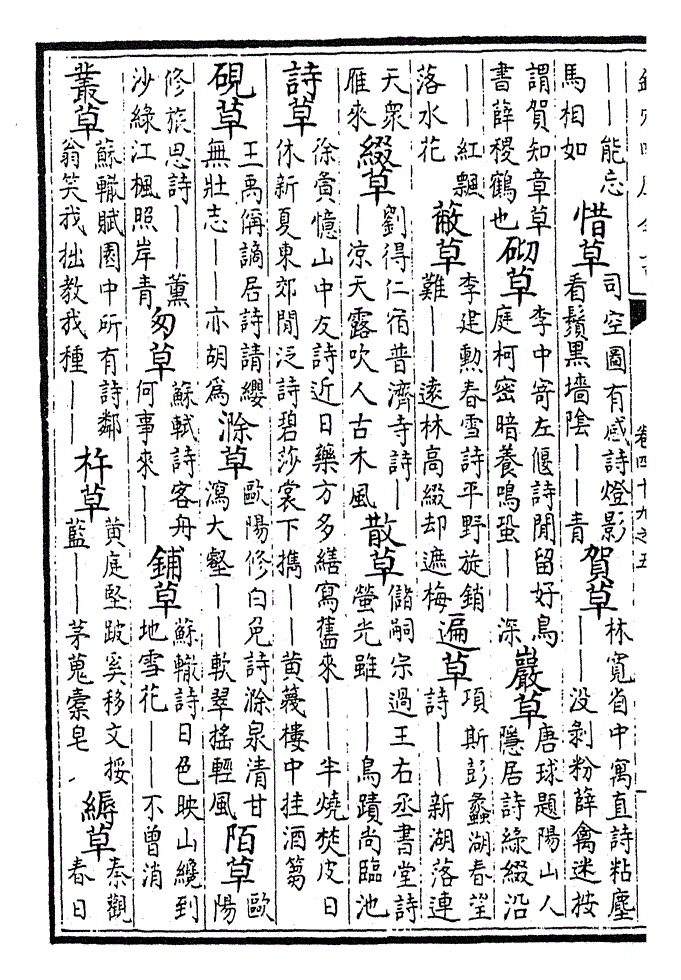 卷四十九之五
——能忘
馬相如
惜草
司空圖有感詩燈影
看鬚黑墻陰——青
賀草
林寬省中寓直詩粘塵
——没剝粉薛禽迷按
謂賀知章草
書薛稷鶴也
砌草
李中寄左偃詩閒留好鳥
庭柯密暗養鳴蛩——深
巖草
唐球題陽山人
隱居詩緑綴沿
——紅飄
落水花
蔽草
李建勲春雪詩平野旋銷
難——逺林高綴却遮梅
遍草
項斯彭蠡湖春望
詩——新湖落連
天衆
雁來
綴草
劉得仁宿普濟寺詩—
—凉天露吹人古木風
散草
儲嗣宗過王右丞書堂詩
螢光雖——鳥蹟尚臨池
詩草
徐夤憶山中友詩近日藥方多繕寫舊來——半燒焚皮日
休新夏東郊閒泛詩碧莎裳下擕——黄蔑樓中挂酒篘
硯草
王禹偁謫居詩請纓
無壯志——亦胡為
滁草
歐陽修白兔詩滁泉清甘
瀉大壑——軟翠摇輕風
陌草
歐
陽
修旅思詩——薰
沙緑江楓照岸青
匆草
蘇軾詩客舟
何事來——
鋪草
蘇轍詩日色映山纔到
地雪花——不曾消
叢草
蘇轍賦園中所有詩鄰
翁笑我拙教我種——
杵草
黄庭堅跛奚移文挼
藍——茅蒐橐皂
縟草
秦觀
春日